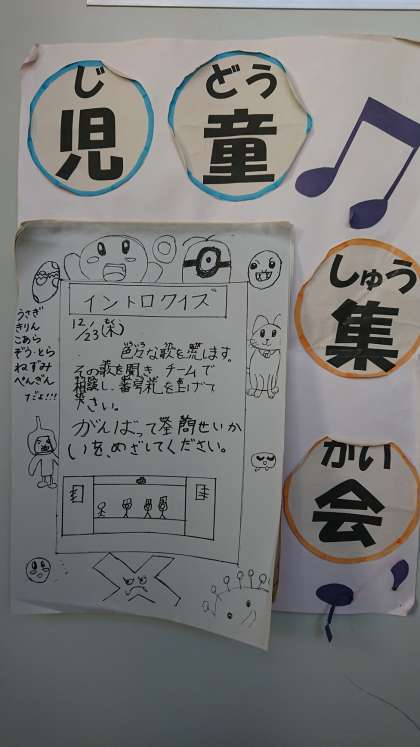 じ どう
児 童
しゅう
集
かい
会
イントロクイズ
12/23(木)
色々な歌を流します。
その歌を聞き チームで
相談し、番号札を上げて
下さい。
がんばって全問せいか
いを、めざしてください。
うさぎ
きりん
こあら
ぞう・とら
ねずみ
ぺんぎん
だよ!!!